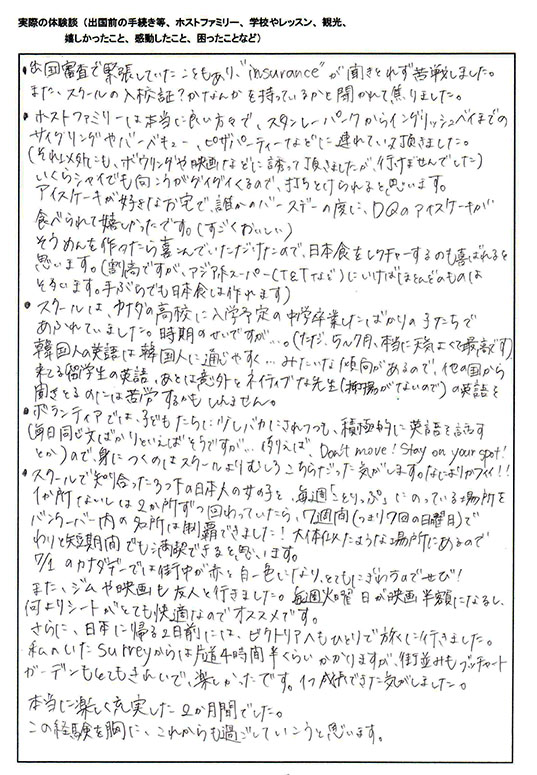 実際の体験談（出国前の手続き等、ホストファミリー、学校やレッスン、観光、
嬉しかったこと、感動したこと、困ったことなど）
・出国審査で緊張していたこともあり、"insurance"が聞きとれず苦戦しました。
また、スクールの入校証？かなんかを持っているかと聞かれて焦りました。
・ホストファミリーは本当に良い方々で、スタンレーパークからイングリッシュベイまでの
サイクリングやバーベキュー、ピザパーティーなどに連れていって頂きました。
(それ以外にも、ボウリングや映画などに誘って頂きましたが、行けませんでした)
いくらシャイでも向こうがグイグイくるので、打ちとけられると思います。
アイスケーキが好きなお宅で、誰かのバースデーの度に、DQのアイスケーキが
食べられて嬉しかったです。(すごくおいしい)
そうめんを作ったら喜んでいただけたので、日本食をレクチャーするのも喜ばれると
思います。(割高ですが、アジア系スーパー(T&Tなど)にいけばほとんどのものは
そろいます。手ぶらでも日本食は作れます)
・スクールは、カナダの高校に入学予定の中学卒業したばかりの子たちで
あふれていました。時期のせいですが…。(ただ、5月,7月、本当に天気よくて最高です)
韓国人の英語は韓国人に通じやすく…みたいな傾向があるので、他の国から
来てる留学生の英語、あとは意外とネイティブな先生(抑揚がないので)の英語を
聞きとるのには苦労するかもしれません。
・ボランティアでは、子どもたちに少しバカにされつつも、積極的に英語を話す
(毎日同じ文ばかりといえばそうですが…例えば、Don't move! Stay on your spot!
とか)ので、身につくのはスクールよりむしろこちらだった気がします。なによりカワイイ!!
・スクールで知り合った3つ下の日本人の女の子と、毎週「ことりっぷ」にのっている場所を
1か所ないしは2か所ずつ回っていたら、7週間(つまり7回の日曜日)で
バンクーバー内の名所は制覇できました！大体似たような場所にあるので
わりと短期間でも満喫できると思います。
7/1のカナダデーでは街中が赤と白一色になり、とてもにぎわうのでぜひ！
また、ジムや映画も友人と行きました。毎週火曜日が映画半額になるし、
何よりシートがとても快適なのでオススメです。
さらに、日本に帰る2日前には、ビクトリアへもひとりで旅しに行きました。
私のいたsurreyからは片道4時間半くらいかかりますが、街並みもブッチャート
ガーデンもとてもきれいで、楽しかったです。1つ成長できた気がしました。
本当に楽しく充実した2か月間でした。
この経験を胸に、これからも過ごしていこうと思います。